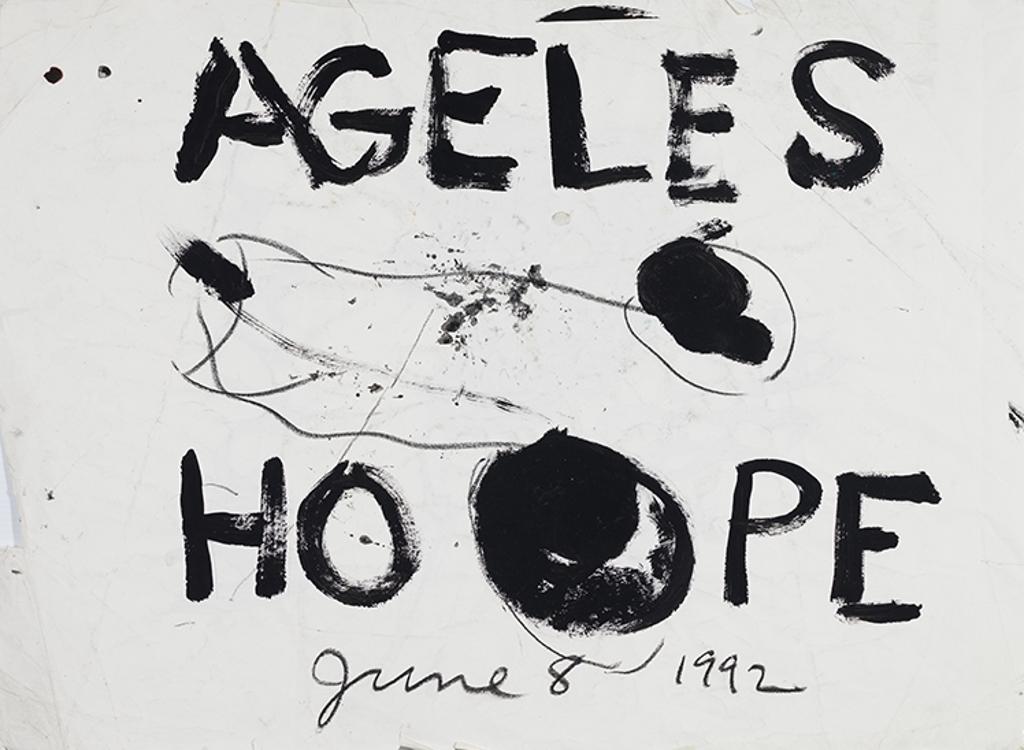 AGELES
HO PE
June 8 1992